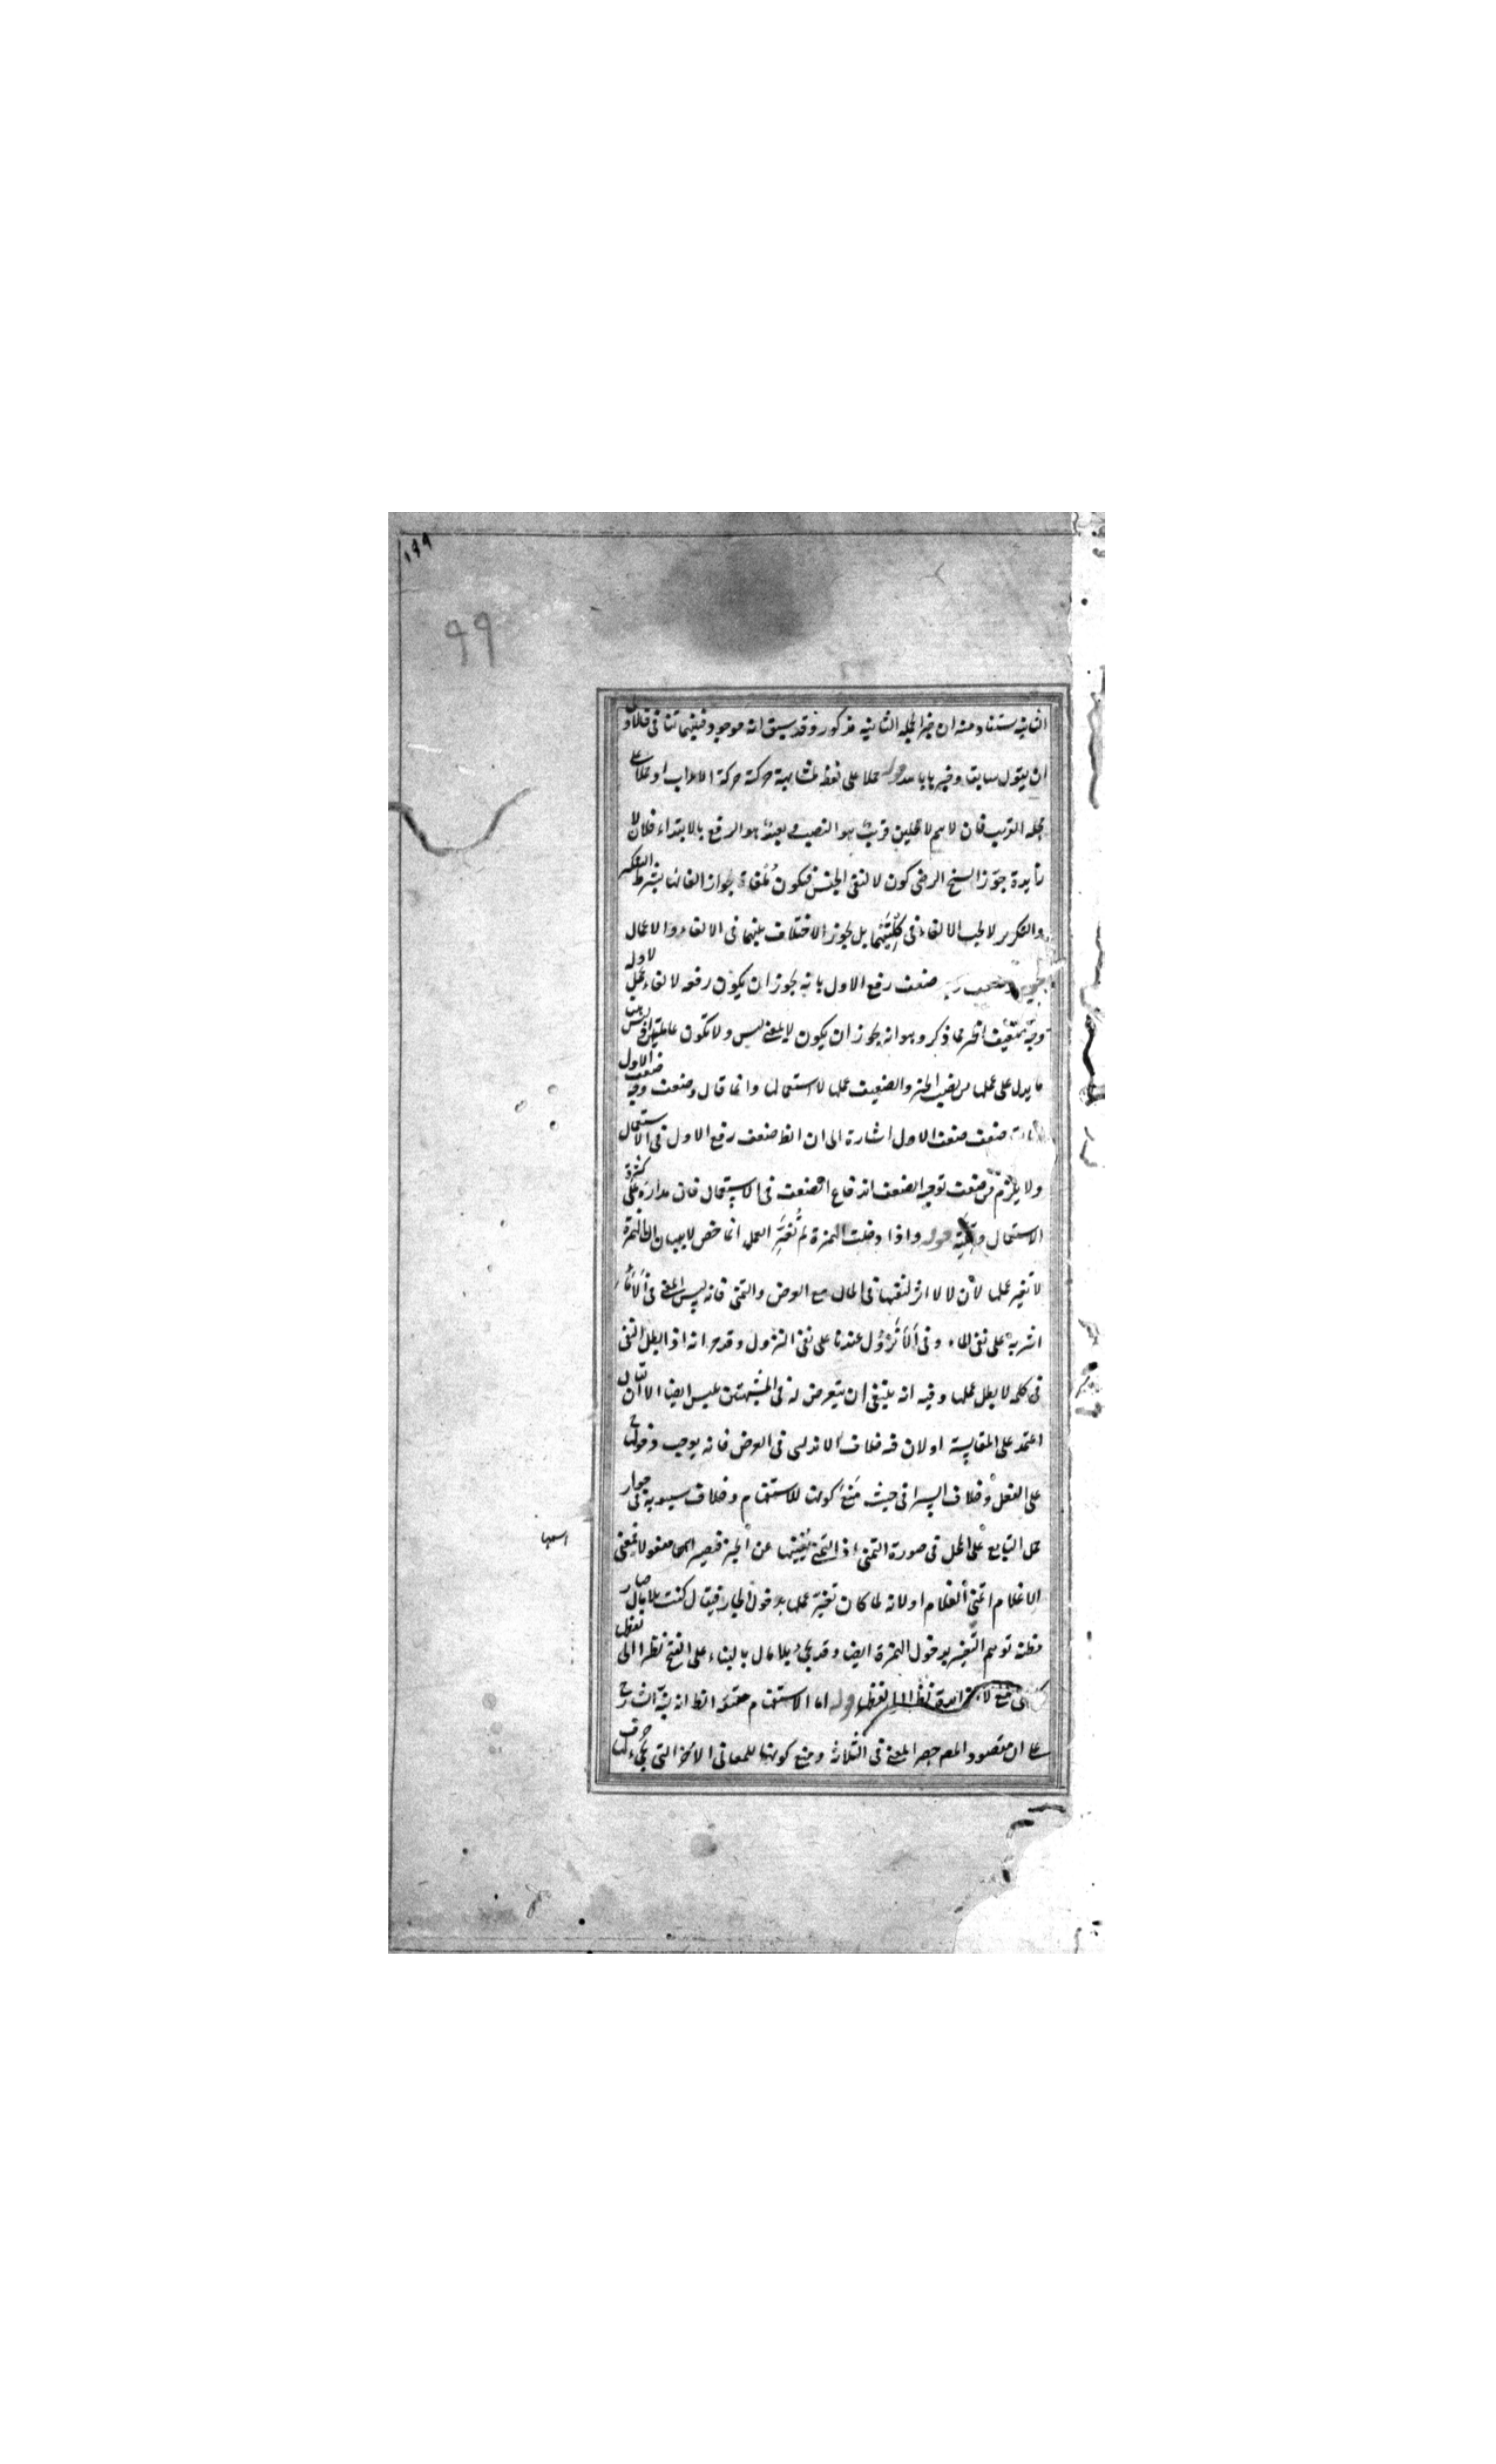 ١٩٩
99
الثانية يستفاد منه ان خبر الجملة الثانية مذكور وقد سبق انه موجود فبينهما تنافى فلاولى
ان يقول سابقا وخبرها قوله حملا على لفظ لمشابهة حركته حركة الاعراب او حملا على
محله القريب فان لاسم لا محلين قريب هو النصب وبعيد هو الرفع بالابتداء فلان لا
زائدة جوز الشيخ الرضى كون لا لنفى الجنس فيكون ملغاة لجواز الغائها بشرط التنكير
والتكرير لا يجب الالغاء فى كليتهما بل يجوز الاختلاف بينهما فى الالغاء والاعمال
ضعف رفع الاول بانه يجوز ان يكون رفعه لالغاء عمل لا وله
وجه تضعيف اخر مما ذكر وهو انه يجوز ان يكون لا بمعنى ليس ولا تكون عاملة
ما يدل على عملها من نصب الخبر والضعيف عملها لا استعمالها وانما قال وضعف وجه ضعف الاول
ضعف ضعف الاول اشارة الى ان الظ ضعف رفع الاول فى الاستعمال
ولا يلزم من ضعف توجيه الضعف اندفاع الضعف فى الاستعمال فان مداره على كثرة
الاستعمال وقلته قوله واذا دخلت الهمزة لم تغير العمل انما خص لا ببيان ان الهمزة
لا تغير عملها لان لا لا اثر لنفيها فى الحال مع العرض والتمنى فانه ليس المعنى فى الا ماء
اشربه على نفى الماء وفى الا نزول عندنا على نفى النزول وقد مر انه اذا ابطل النفى
فى كلمه لا يبطل عملها وفيه انه ينبغى ان يتعرض له فى المشبهتين بليس ايضا الا ان
اعتمد على المقايسة او لان فيه خلاف الاندلسى فى العرض فانه يوجب دخولها ح
على الفعل وخلاف السيرافى حيث منع كونه للاستفهام وخلاف سيبويه فى جواز
حمل التابع على المحل فى صورة التمنى اذ التمنى يغنيها عن الخبر فيصير اسمها مفعولا فمعنى
الا غلام اتمنى الغلام او لانه لما كان تغير عملها بدخول الجار فيقال كنت بلا مال صار
مظنة توهم التغير بدخول الهمزة ايضا وقد يجئ بلا مال بالبناء على الفتح نظرا الى لفظ
نظرا الى لفظها قوله اما الاستفهام حقيقة الظ انه نبه الشارح
على ان مقصود المص حصر المعنى فى الثلاثة ومنع كونها للمعانى الاخر التى يجئ لها حرف
اسمها